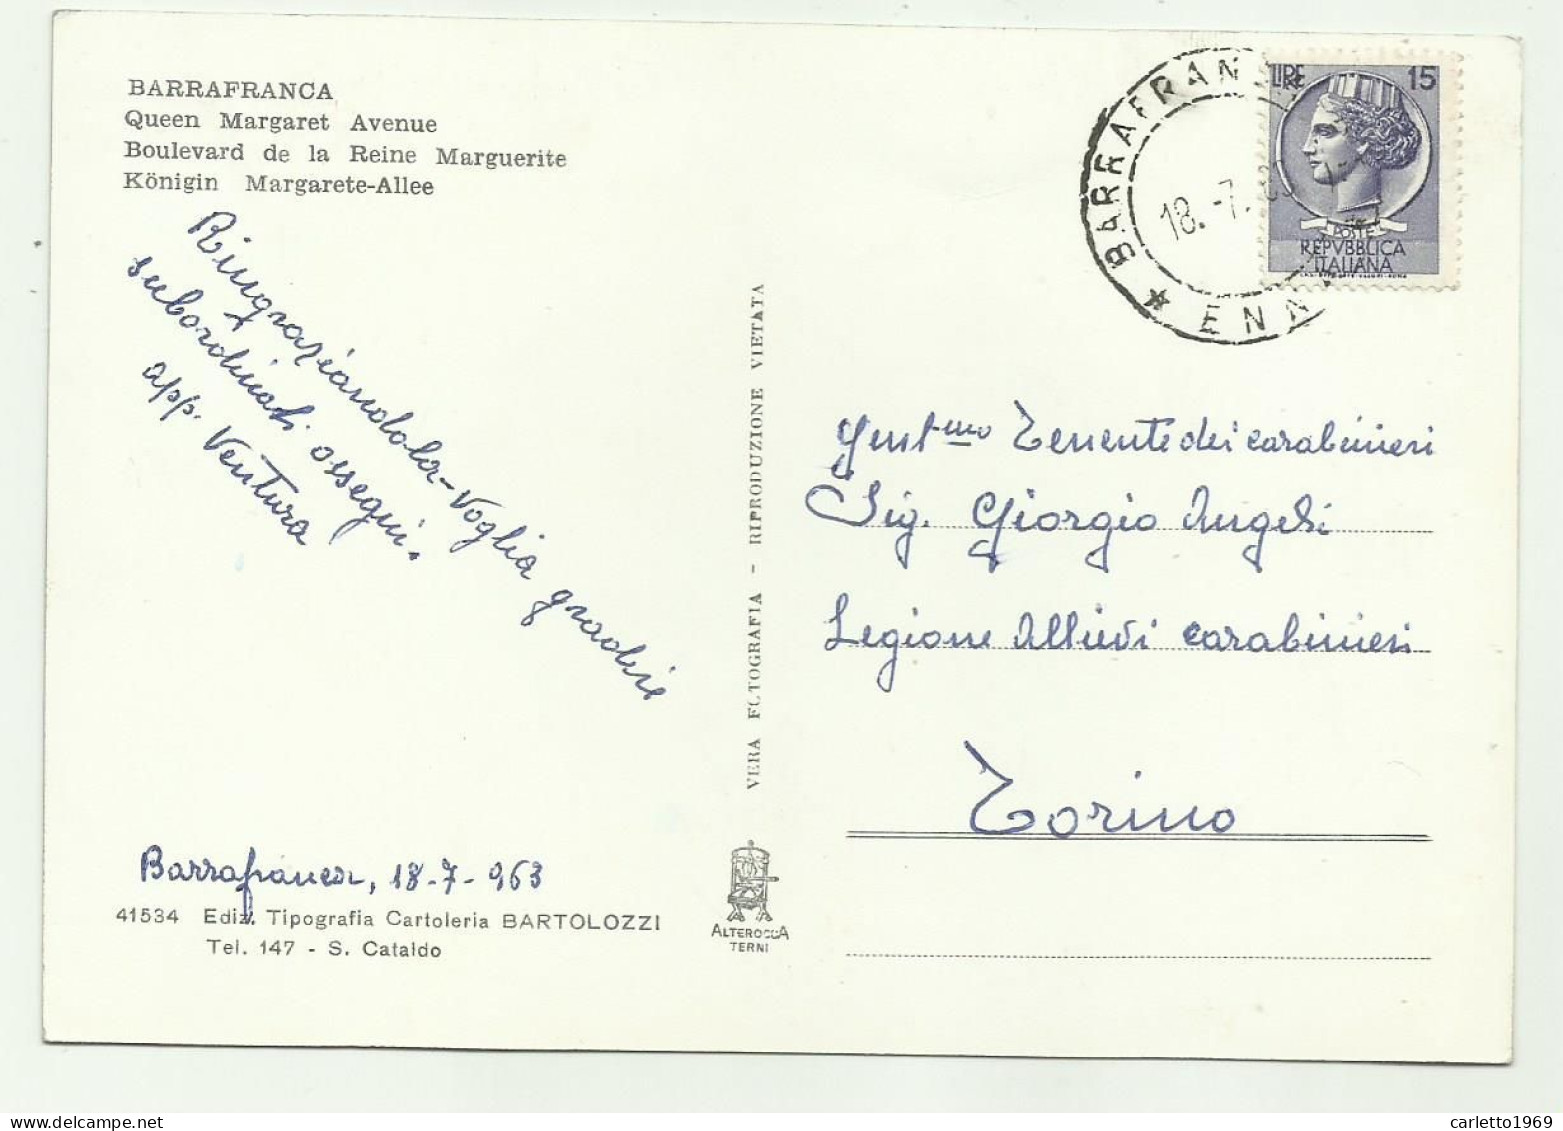 BARRAFRANCA
Queen Margaret Avenue
Boulevard de la Reine Marguerite
Königin Margarete-Allee
Ringraziandola - Voglia gradire
subordinati ossequi.
app. Ventura
Barrafranca, 18-7-963
41534 Ediz. Tipografia Cartoleria BARTOLOZZI
Tel. 147 - S. Cataldo
VERA FOTOGRAFIA - RIPRODUZIONE VIETATA
ALTEROCCA
TERNI
BARRAFRAN
18.-7.
* ENNA
LIRE 15
POSTE
REPVBBLICA
ITALIANA
Gent.mo Tenente dei carabinieri
Sig. Giorgio Angeli
Legione Allievi carabinieri
Torino
carletto1969